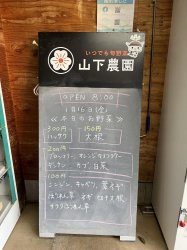 いつでも旬野菜
山下農園
OPEN 8:00
1月16日(金)
≪本日のお野菜≫
300円 150円
ハッサク 大根
200円
ブロッコリー オレンジカリフラワー
チンゲン カブ 白菜
100円
ニンジン キャベツ 葉ネギ
ほうれん草 ネギ
サラダほうれん草